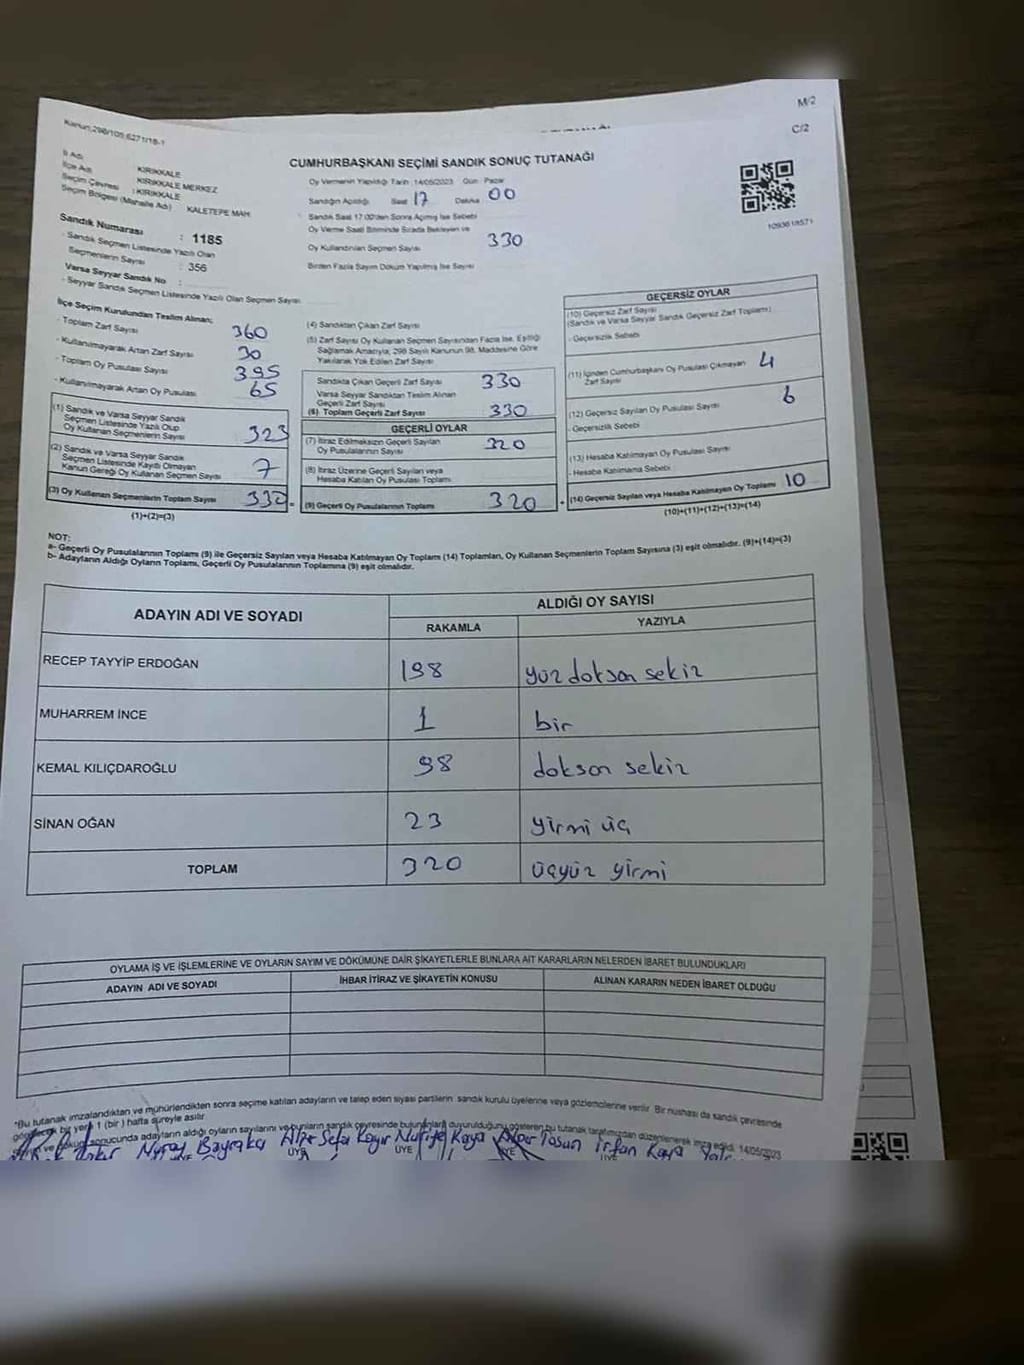 M/2
C/2
Kanun;298/105;6271/18-1
CUMHURBAŞKANI SEÇİMİ SANDIK SONUÇ TUTANAĞI
İl Adı KIRIKKALE
İlçe Adı KIRIKKALE MERKEZ
Seçim Çevresi : KIRIKKALE
Seçim Bölgesi (Mahalle Adı) KALETEPE MAH.
Oy Vermenin Yapıldığı Tarih :14/05/2023 Gün : Pazar
Sandığın Açıldığı Saat 17 Dakika 00
Sandık Saat 17:00'den Sonra Açılmış İse Sebebi
Oy Verme Saati Bitiminde Sırada Bekleyen ve
Oy Kullandırılan Seçmen Sayısı 330
Birden Fazla Sayım Döküm Yapılmış İse Sayısı
Sandık Numarası : 1185
- Sandık Seçmen Listesinde Yazılı Olan
Seçmenlerin Sayısı : 356
Varsa Seyyar Sandık No :
- Seyyar Sandık Seçmen Listesinde Yazılı Olan Seçmen Sayısı
İlçe Seçim Kurulundan Teslim Alınan;
- Toplam Zarf Sayısı 360
- Kullanılmayarak Artan Zarf Sayısı 30
- Toplam Oy Pusulası Sayısı 395
- Kullanılmayarak Artan Oy Pusulası 65
(1) Sandık ve Varsa Seyyar Sandık
Seçmen Listesinde Yazılı Olup
Oy Kullanan Seçmenlerin Sayısı 323
(2) Sandık ve Varsa Seyyar Sandık
Seçmen Listesinde Kayıtlı Olmayan
Kanun Gereği Oy Kullanan Seçmen Sayısı 7
(3) Oy Kullanan Seçmenlerin Toplam Sayısı 330 =
(1)+(2)=(3)
(4) Sandıktan Çıkan Zarf Sayısı
(5) Zarf Sayısı Oy Kullanan Seçmen Sayısından Fazla İse, Eşitliği
Sağlamak Amacıyla, 298 Sayılı Kanunun 98. Maddesine Göre
Yakılarak Yok Edilen Zarf Sayısı
Sandıkta Çıkan Geçerli Zarf Sayısı 330
Varsa Seyyar Sandıktan Teslim Alınan
Geçerli Zarf Sayısı
(6) Toplam Geçerli Zarf Sayısı 330
GEÇERLİ OYLAR
(7) İtiraz Edilmeksizin Geçerli Sayılan
Oy Pusulasının Sayısı 320
(8) İtiraz Üzerine Geçerli Sayılan veya
Hesaba Katılan Oy Pusulası Toplamı
(9) Geçerli Oy Pusulalarının Toplamı 320 +
GEÇERSİZ OYLAR
(10) Geçersiz Zarf Sayısı
(Sandık ve Varsa Seyyar Sandık Geçersiz Zarf Toplamı)
- Geçersizlik Sebebi
(11) İçinden Cumhurbaşkanı Oy Pusulası Çıkmayan
Zarf Sayısı 4
(12) Geçersiz Sayılan Oy Pusulası Sayısı 6
- Geçersizlik Sebebi
(13) Hesaba Katılmayan Oy Pusulası Sayısı
- Hesaba Katılmama Sebebi
(14) Geçersiz Sayılan veya Hesaba Katılmayan Oy Toplamı 10
(10)+(11)+(12)+(13)=(14)
NOT:
a- Geçerli Oy Pusulalarının Toplamı (9) ile Geçersiz Sayılan veya Hesaba Katılmayan Oy Toplamı (14) Toplamları, Oy Kullanan Seçmenlerin Toplam Sayısına (3) eşit olmalıdır. (9)+(14)=(3)
b- Adayların Aldığı Oyların Toplamı, Geçerli Oy Pusulalarının Toplamına (9) eşit olmalıdır.
ADAYIN ADI VE SOYADI ALDIĞI OY SAYISI
RAKAMLA YAZIYLA
RECEP TAYYİP ERDOĞAN 198 yüz doksan sekiz
MUHARREM İNCE 1 bir
KEMAL KILIÇDAROĞLU 98 doksan sekiz
SİNAN OĞAN 23 yirmi üç
TOPLAM 320 üçyüz yirmi
OYLAMA İŞ VE İŞLEMLERİNE VE OYLARIN SAYIM VE DÖKÜMÜNE DAİR ŞİKAYETLERLE BUNLARA AİT KARARLARIN NELERDEN İBARET BULUNDUKLARI
ADAYIN ADI VE SOYADI İHBAR İTİRAZ VE ŞİKAYETİN KONUSU ALINAN KARARIN NEDEN İBARET OLDUĞU
*Bu tutanak imzalandıktan ve mühürlendikten sonra seçime katılan adayların ve talep eden siyasi partilerin sandık kurulu üyelerine veya gözlemcilerine verilir. Bir nüshası da sandık çevresinde
bir yere 1 (bir ) hafta süreyle asılır.
sonucunda adayların aldığı oyların sayılarını ve bunların sandık çevresinde bulunanlara duyurulduğunu gösteren bu tutanak tarafımızdan düzenlenerek imza edildi. 14/05/2023
Bayrakcı Alper Sefa Kaya Nuriye Kaya Alper Tosun İrfan Kaya
ÜYE ÜYE ÜYE ÜYE